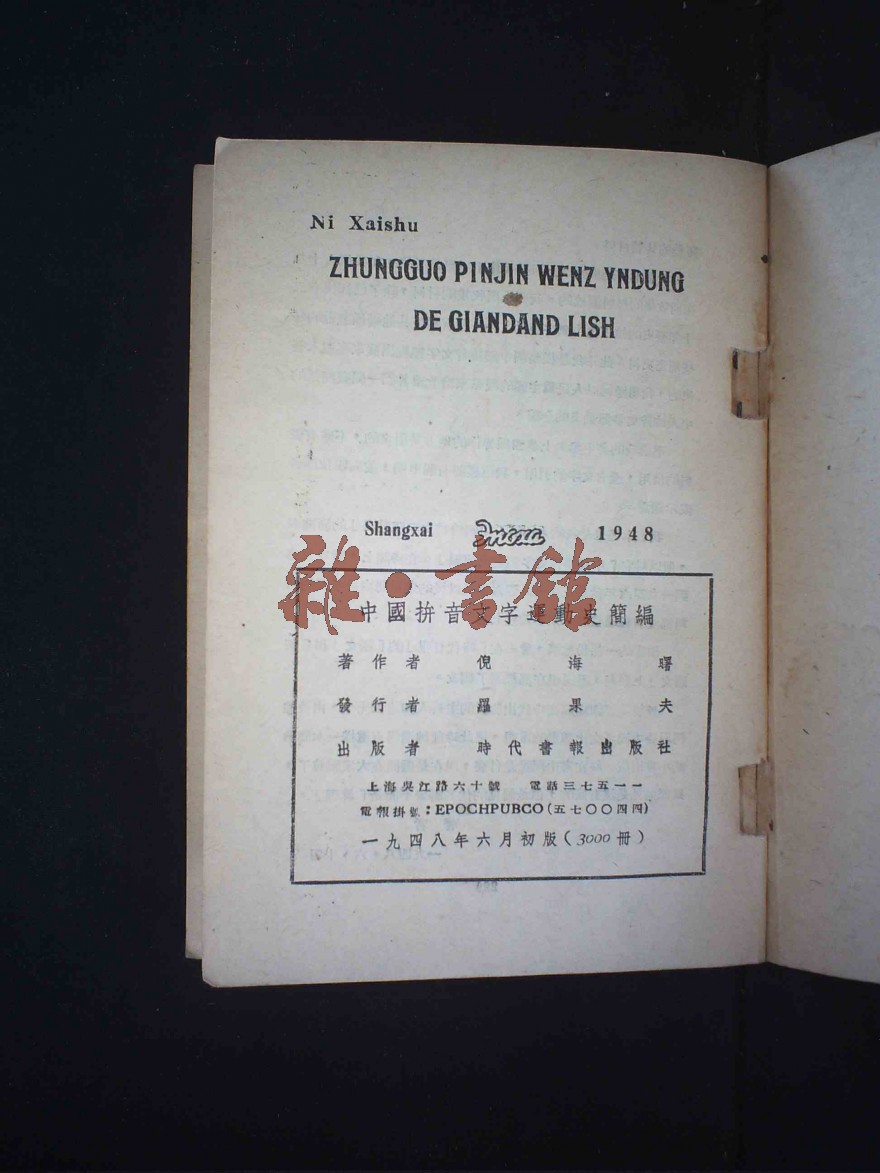 Ni Xaishu
ZHUNGGUO PINJIN WENZ YNDUNG
DE GIANDAND LISH
Shangxai Эпоха 1948
雜·書館
中國拼音文字運動史簡編
著作者 倪海曙
發行者 羅果夫
出版者 時代書報出版社
上海吳江路六十號 電話三七五一一
電報掛號：EPOCHPUBCO(五七〇〇四四)
一九四八年六月初版(3000冊)